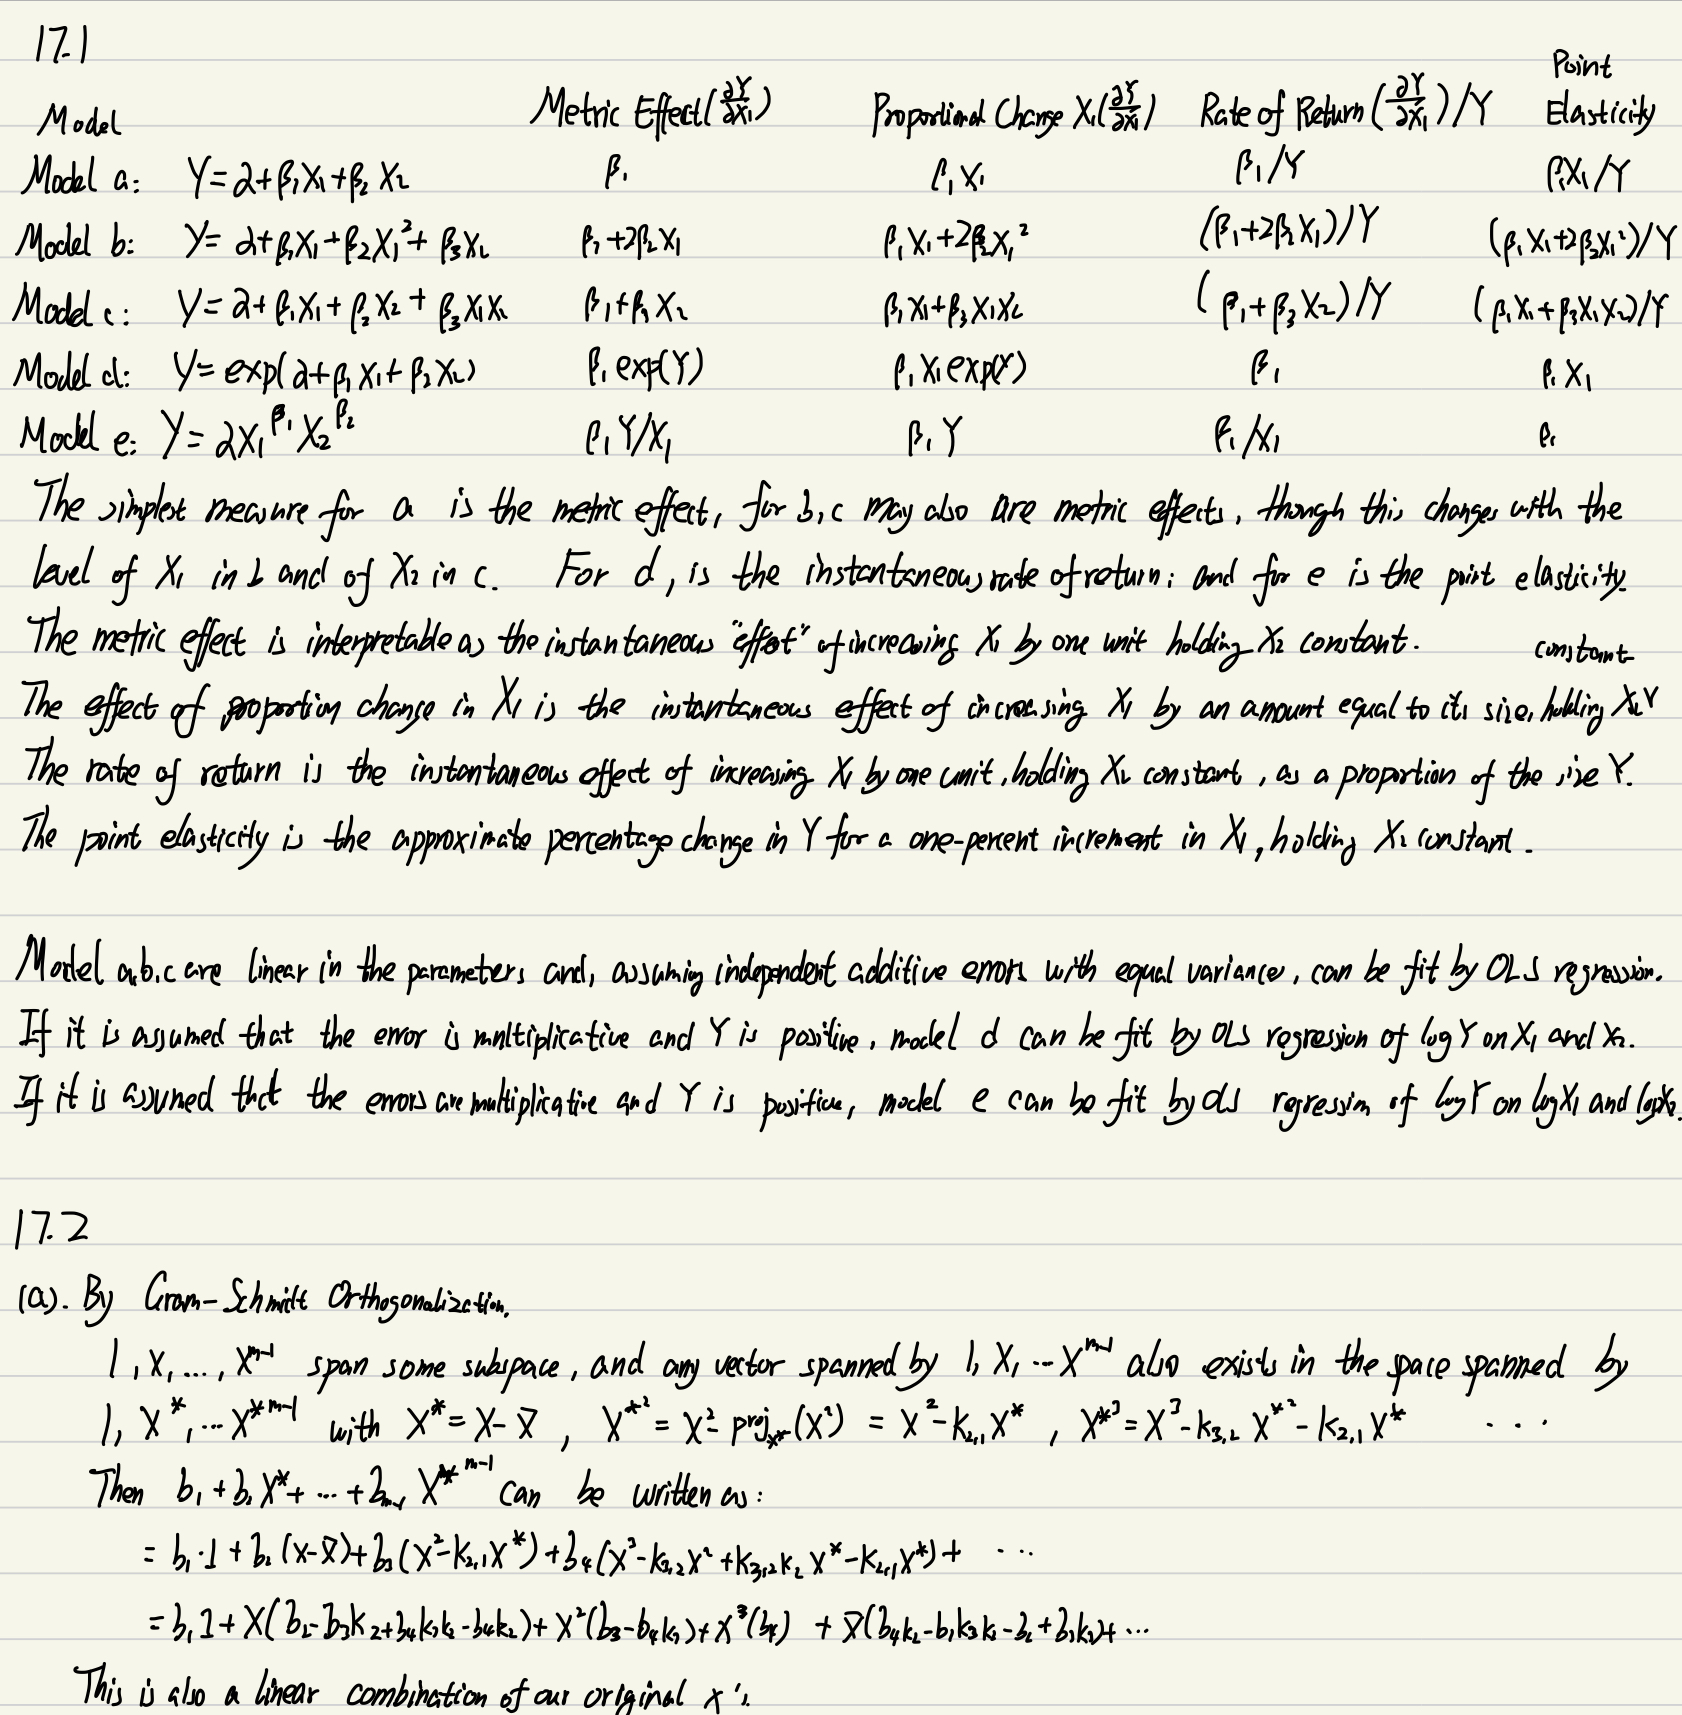 17.1
Point
Model Metric Effect(∂Y/∂X₁) Proportional Change X₁(∂Y/∂X₁) Rate of Return(∂Y/∂X₁)/Y Elasticity
Model a: Y=α+β₁X₁+β₂X₂ β₁ β₁X₁ β₁/Y β₁X₁/Y
Model b: Y=α+β₁X₁+β₂X₁²+β₃X₂ β₁+2β₂X₁ β₁X₁+2β₂X₁² (β₁+2β₂X₁)/Y (β₁X₁+2β₂X₁²)/Y
Model c: Y=α+β₁X₁+β₂X₂+β₃X₁X₂ β₁+β₃X₂ β₁X₁+β₃X₁X₂ (β₁+β₃X₂)/Y (β₁X₁+β₃X₁X₂)/Y
Model d: Y=exp(α+β₁X₁+β₂X₂) β₁exp(Y) β₁X₁exp(Y) β₁ β₁X₁
Model e: Y=αX₁^β₁ X₂^β₂ β₁Y/X₁ β₁Y β₁/X₁ β₁
The simplest measure for a is the metric effect, for b,c may also are metric effects, though this changes with the
level of X₁ in b and of X₂ in c. For d, is the instantaneous rate of return; and for e is the point elasticity.
The metric effect is interpretable as the instantaneous "effect" of increasing X₁ by one unit holding X₂ constant.
constant
The effect of proportion change in X₁ is the instantaneous effect of increasing X₁ by an amount equal to its size, holding X₂ ∨
The rate of return is the instantaneous effect of increasing X₁ by one unit, holding X₂ constant, as a proportion of the size Y.
The point elasticity is the approximate percentage change in Y for a one-percent increment in X₁, holding X₂ constant.
Model a,b,c are linear in the parameters and, assuming independent additive errors with equal variance, can be fit by OLS regression.
If it is assumed that the error is multiplicative and Y is positive, model d can be fit by OLS regression of log Y on X₁ and X₂.
If it is assumed that the errors are multiplicative and Y is positive, model e can be fit by OLS regression of log Y on log X₁ and log X₂.
17.2
(a). By Gram-Schmidt Orthogonalization.
1, X, ..., X^m-1 span some subspace, and any vector spanned by 1, X, ... X^m-1 also exists in the space spanned by
1, X*, ... X*^m-1 with X* = X-X̄, X*² = X²-proj_X*(X²) = X²-K₂,₁X*, X*³ = X³-K₃,₂X*²-K₂,₁X* ...
Then b₁+b₂X*+...+b_m-1 X*^m-1 can be written as:
= b₁·1+b₂(X-X̄)+b₃(X²-K₂,₁X*)+b₄(X³-K₃,₂X²+K₃,₂K₂X*-K₂,₁X*)+ ...
= b₁1+X(b₂-b₃K₂+b₄K₃K₂-b₄K₂)+X²(b₃-b₄K₃)+X³(b₄) + X̄(b₄K₂-b₁K₃K₂-b₂+b₃K₂)+...
This is also a linear combination of our original x's.